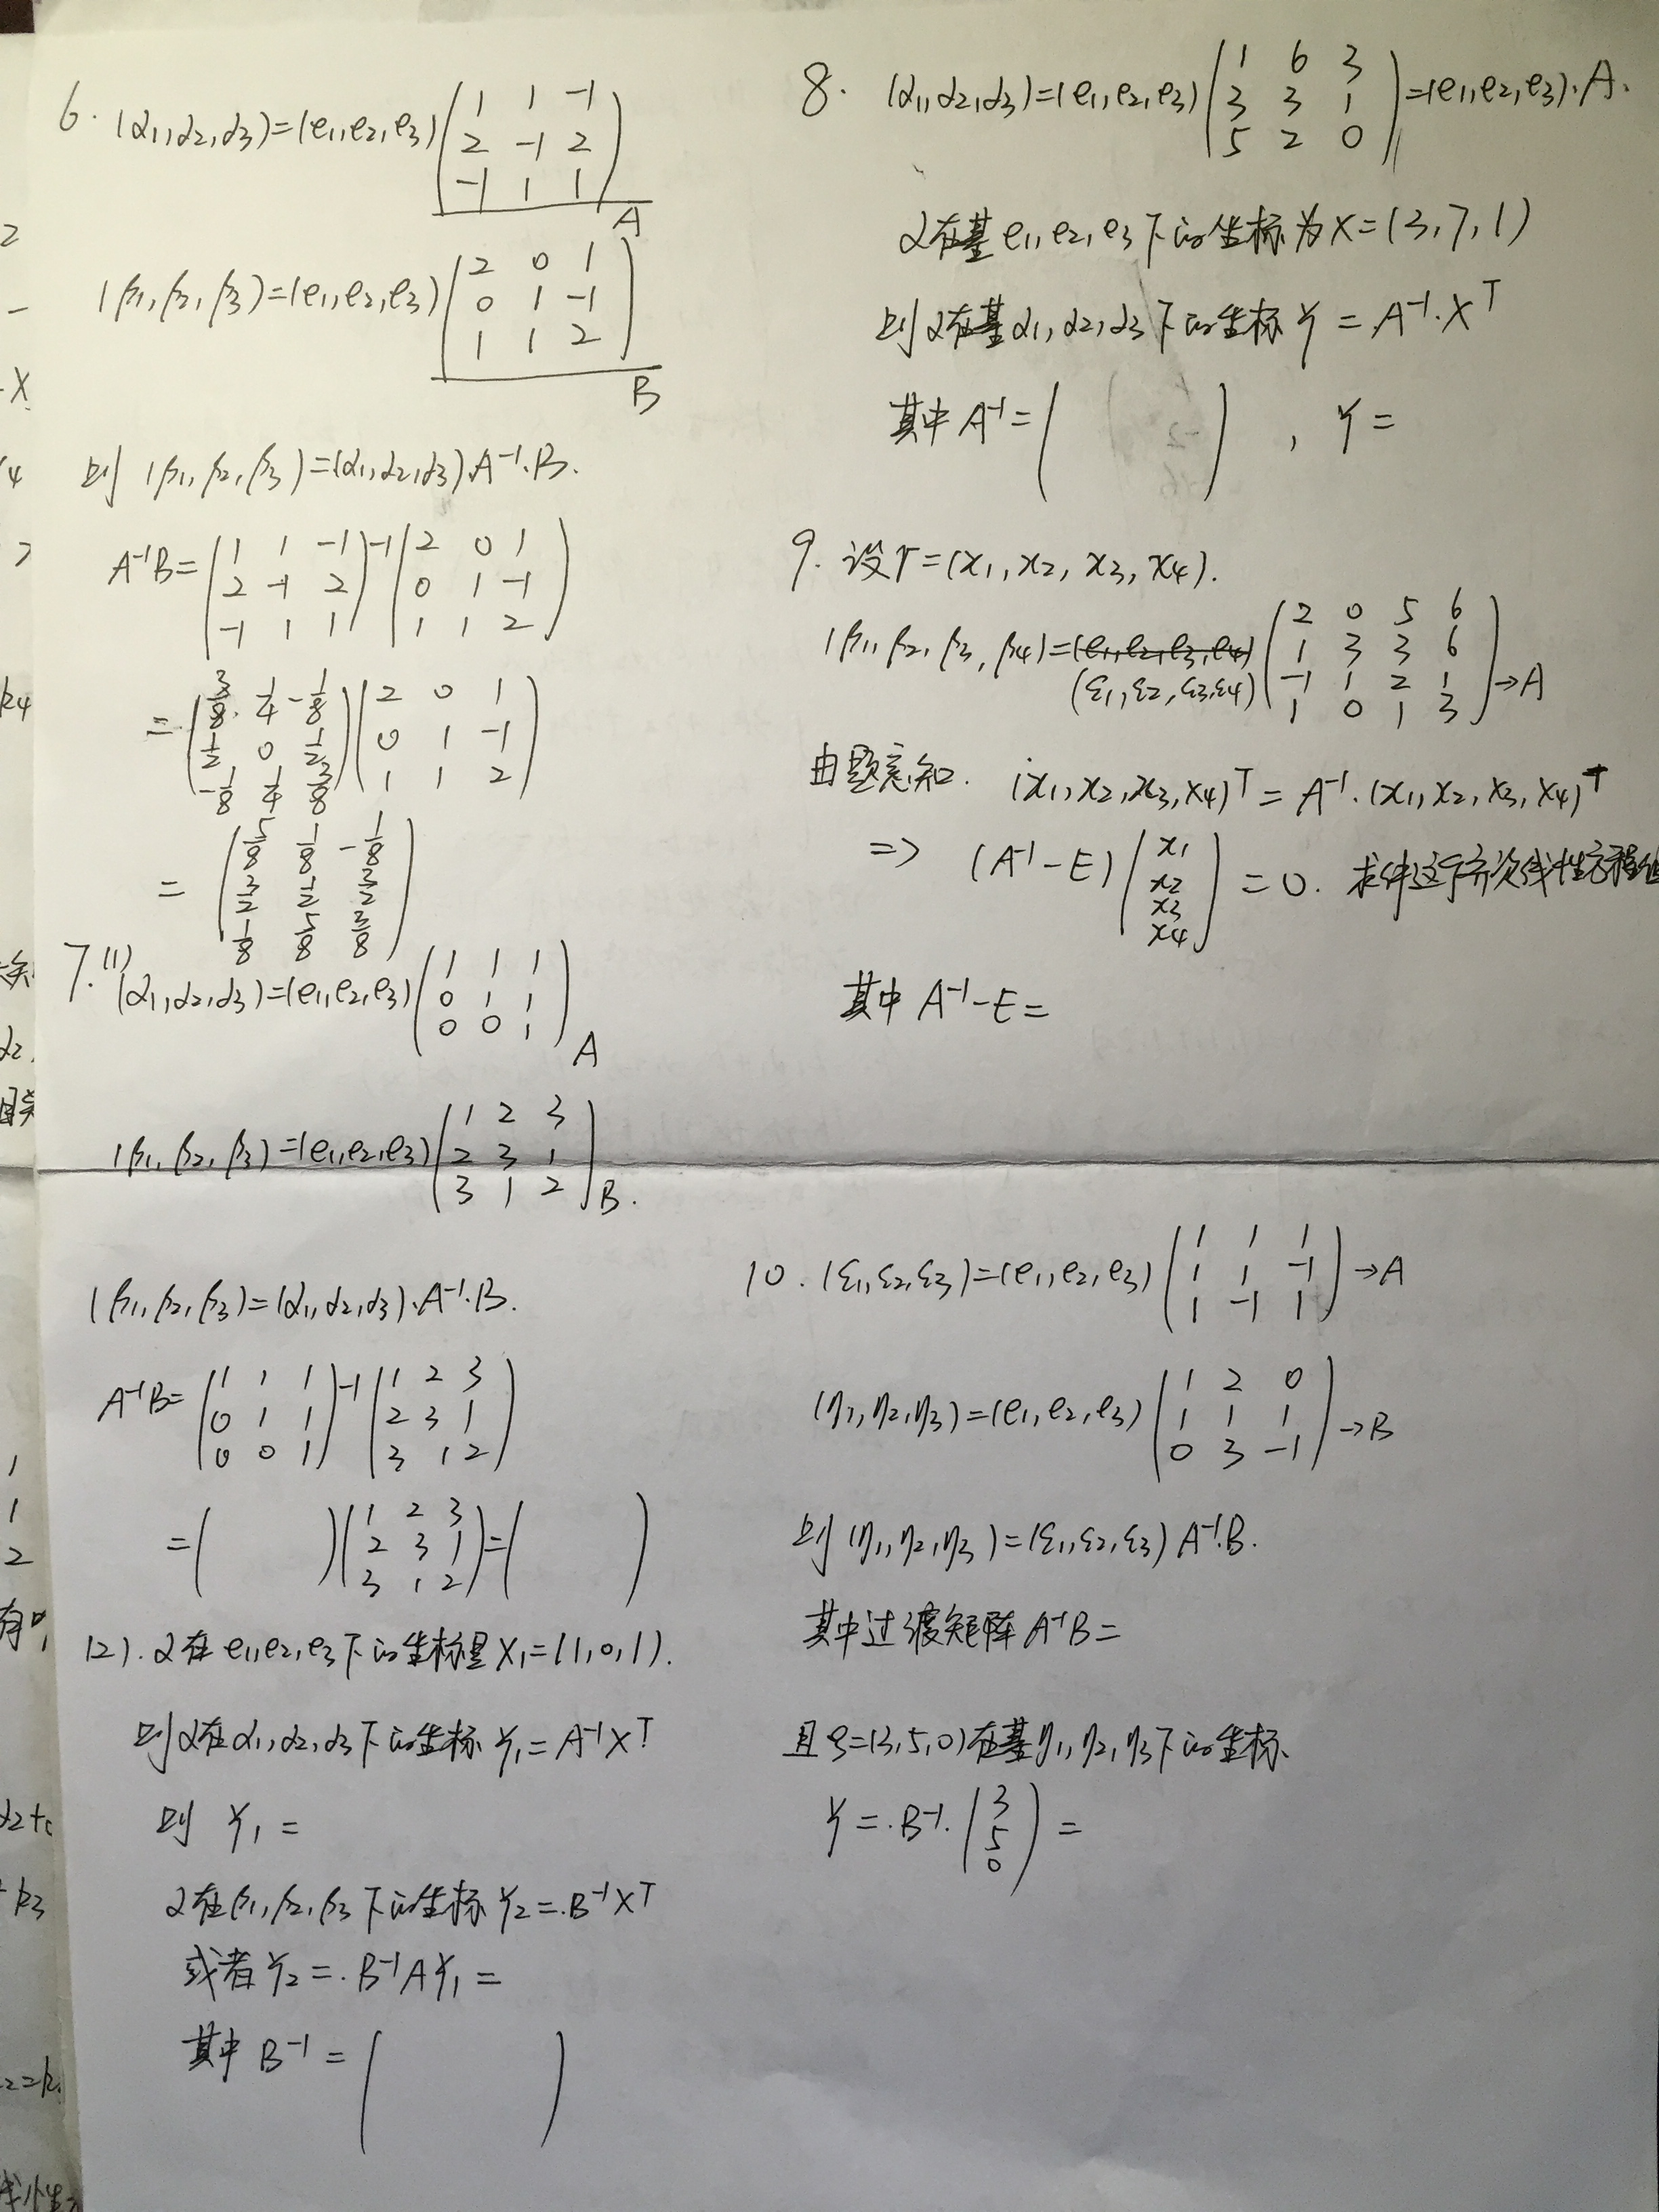 6. (α1,α2,α3)=(e1,e2,e3)
1 1 -1
2 -1 2
-1 1 1
A
(β1,β2,β3)=(e1,e2,e3)
2 0 1
0 1 -1
1 1 2
B
则 (β1,β2,β3)=(α1,α2,α3).A⁻¹.B.
A⁻¹B=
1 1 -1
2 -1 2
-1 1 1
-1
2 0 1
0 1 -1
1 1 2
=
3/8 1/4 -1/8
1/2 0 1/2
-1/8 1/4 3/8
2 0 1
0 1 -1
1 1 2
=
5/8 1/8 -1/8
3/2 1/2 3/2
1/8 5/8 3/8
7.(1)
(α1,α2,α3)=(e1,e2,e3)
1 1 1
0 1 1
0 0 1
A
(β1,β2,β3)=(e1,e2,e3)
1 2 3
2 3 1
3 1 2
B.
(β1,β2,β3)=(α1,α2,α3).A⁻¹.B.
A⁻¹B=
1 1 1
0 1 1
0 0 1
-1
1 2 3
2 3 1
3 1 2
=( )
1 2 3
2 3 1
3 1 2
=( )
(2). α在 e1,e2,e3下的坐标是X1=(1,0,1).
则α在α1,α2,α3下的坐标 Y1=A⁻¹Xᵀ
则 Y1=
α在β1,β2,β3下的坐标 Y2=.B⁻¹Xᵀ
或者Y2=.B⁻¹AY1=
其中 B⁻¹=( )
8. (α1,α2,α3)=(e1,e2,e3)
1 6 3
3 3 1
5 2 0
=(e1,e2,e3).A.
α在基 e1,e2,e3下的坐标为X=(3,7,1)
则α在基α1,α2,α3下的坐标 Y=A⁻¹.Xᵀ
其中 A⁻¹=( ), Y=
9. 设r=(x1,x2,x3,x4).
(β1,β2,β3,β4)=(e1,e2,e3,e4)
(ε1,ε2,ε3,ε4)
2 0 5 6
1 3 3 6
-1 1 2 1
1 0 1 3
→A
由题意知. (x1,x2,x3,x4)ᵀ=A⁻¹.(x1,x2,x3,x4)ᵀ
=> (A⁻¹-E)
x1
x2
x3
x4
=0. 求解这个齐次线性方程组
其中 A⁻¹-E=
10. (ε1,ε2,ε3)=(e1,e2,e3)
1 1 1
1 1 -1
1 -1 1
→A
(η1,η2,η3)=(e1,e2,e3)
1 2 0
1 1 1
0 3 -1
→B
则 (η1,η2,η3)=(ε1,ε2,ε3) A⁻¹.B.
其中过渡矩阵 A⁻¹B=
且ξ=(3,5,0)在基η1,η2,η3下的坐标
Y=.B⁻¹.
3
5
0
=